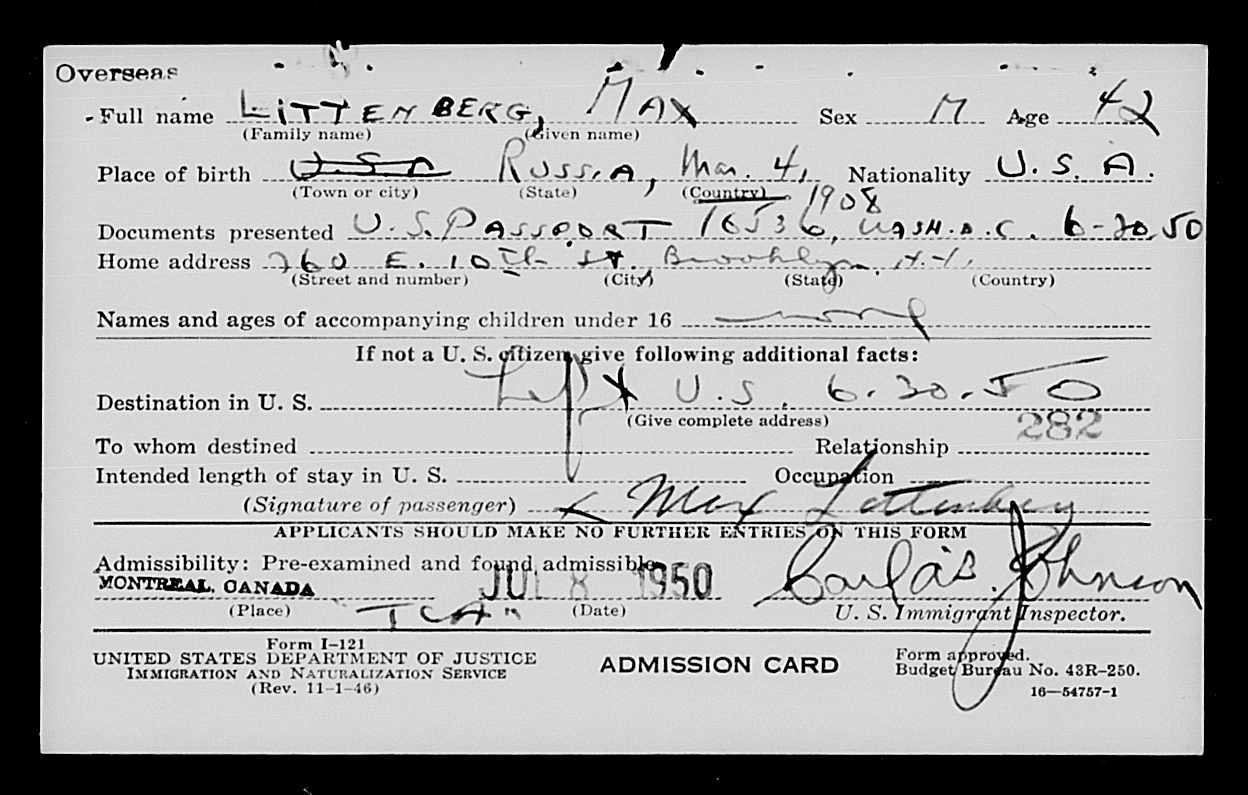 Overseas
Full name LITTENBERG, MAX Sex M Age 42
(Family name) (Given name)
Place of birth U.S.A RUSSIA, Mar. 4, 1908 Nationality U.S.A.
(Town or city) (State) (Country)
Documents presented U.S. PASSPORT 16536, WASH.D.C. 6-20-50
Home address 760 E. 10th St. Brooklyn, N.Y.
(Street and number) (City) (State) (Country)
Names and ages of accompanying children under 16 none
If not a U. S. citizen, give following additional facts:
Left U.S. 6-30-50
Destination in U. S.
(Give complete address) 282
To whom destined Relationship
Intended length of stay in U. S. Occupation
(Signature of passenger) x Max Littenberg
APPLICANTS SHOULD MAKE NO FURTHER ENTRIES ON THIS FORM
Admissibility: Pre-examined and found admissible
MONTREAL, CANADA JUL 8 1950 Johnson
(Place) "TCA" (Date) U. S. Immigrant Inspector.
Form I-121
UNITED STATES DEPARTMENT OF JUSTICE
IMMIGRATION AND NATURALIZATION SERVICE
(Rev. 11-1-46)
ADMISSION CARD
Form approved.
Budget Bureau No. 43R-250.
16—54757-1